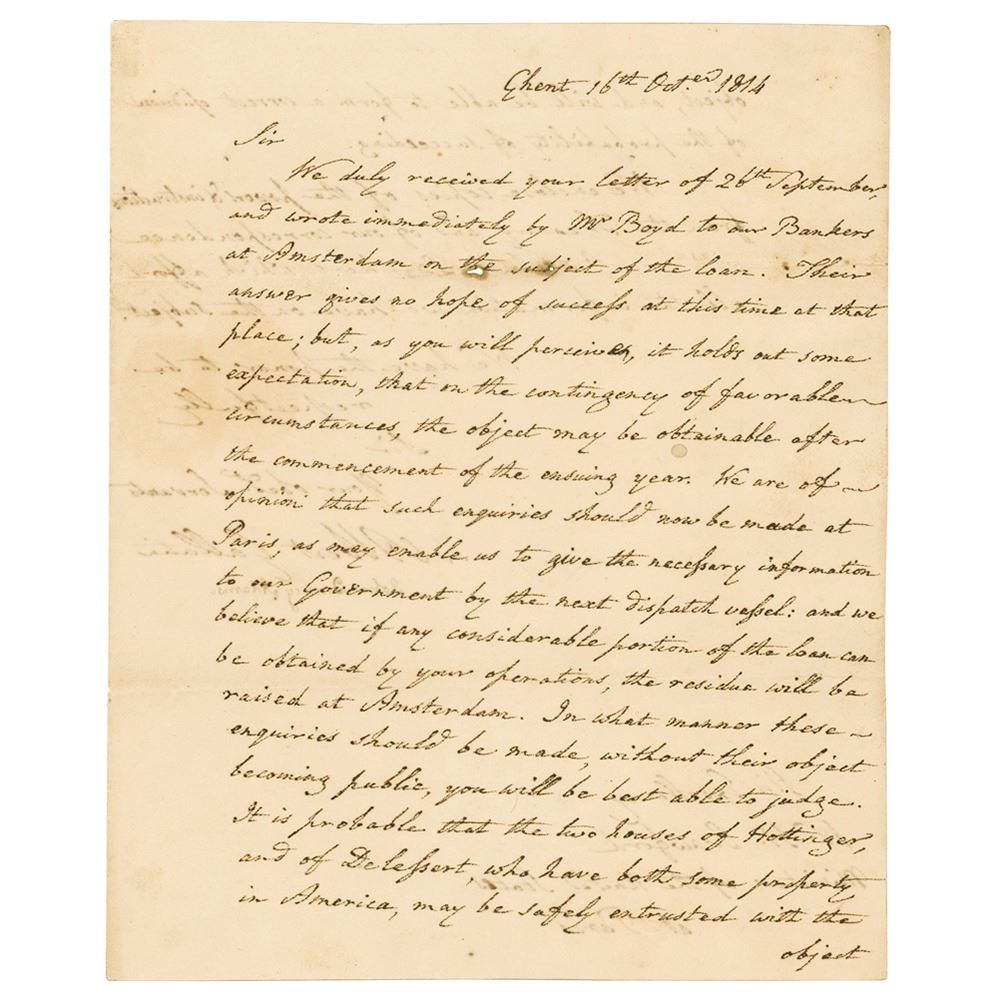 Ghent 16th Octer 1814
Sir
We duly received your letter of 26th September,
and wrote immediately by Mr Boyd to our Bankers
at Amsterdam on the subject of the loan. Their
answer gives no hope of success at this time at that
place; but, as you will perceive, it holds out some
expectation, that on the contingency of favorable
circumstances, the object may be obtainable after
the commencement of the ensuing year. We are of
opinion that such enquiries should now be made at
Paris, as may enable us to give the necessary information
to our Government by the next dispatch vessel: and we
believe that if any considerable portion of the loan can
be obtained by your operations, the residue will be
raised at Amsterdam. In what manner these
enquiries should be made, without their object
becoming public, you will be best able to judge.
It is probable that the two houses of Hottinger,
and of Delessert, who have both some property
in America, may be safely entrusted with the
object